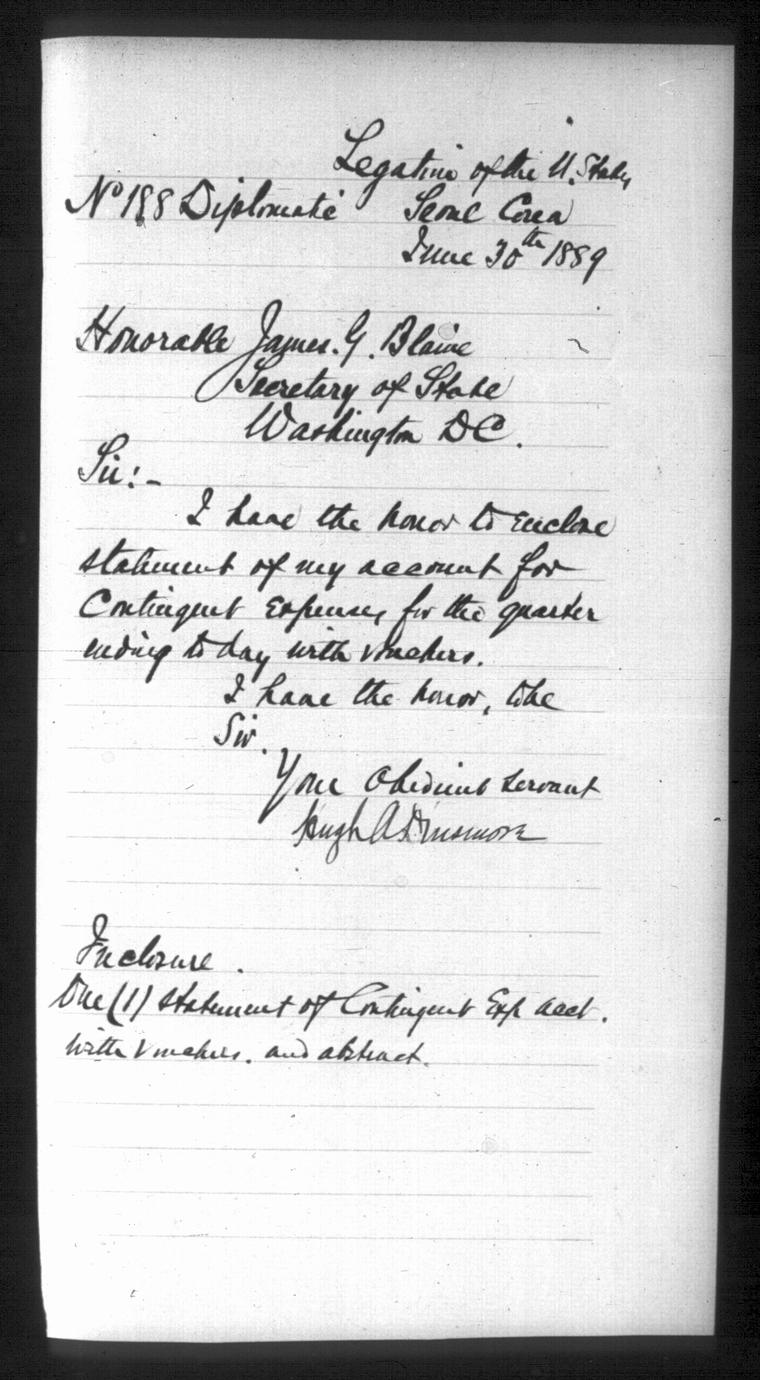 Legation of the U. States
No 188 Diplomatic Seoul Corea
June 30th 1889
Honorable James. G. Blaine
Secretary of State
Washington DC.
Sir:-
I have the honor to enclose
statement of my account for
Contingent Expenses for the quarter
ending today with vouchers.
I have the honor, to be
Sir.
Your obedient servant
Hugh A Dinsmore
Inclosure.
One (1) statement of Contingent Exp acct.
with vouchers. and abstract.